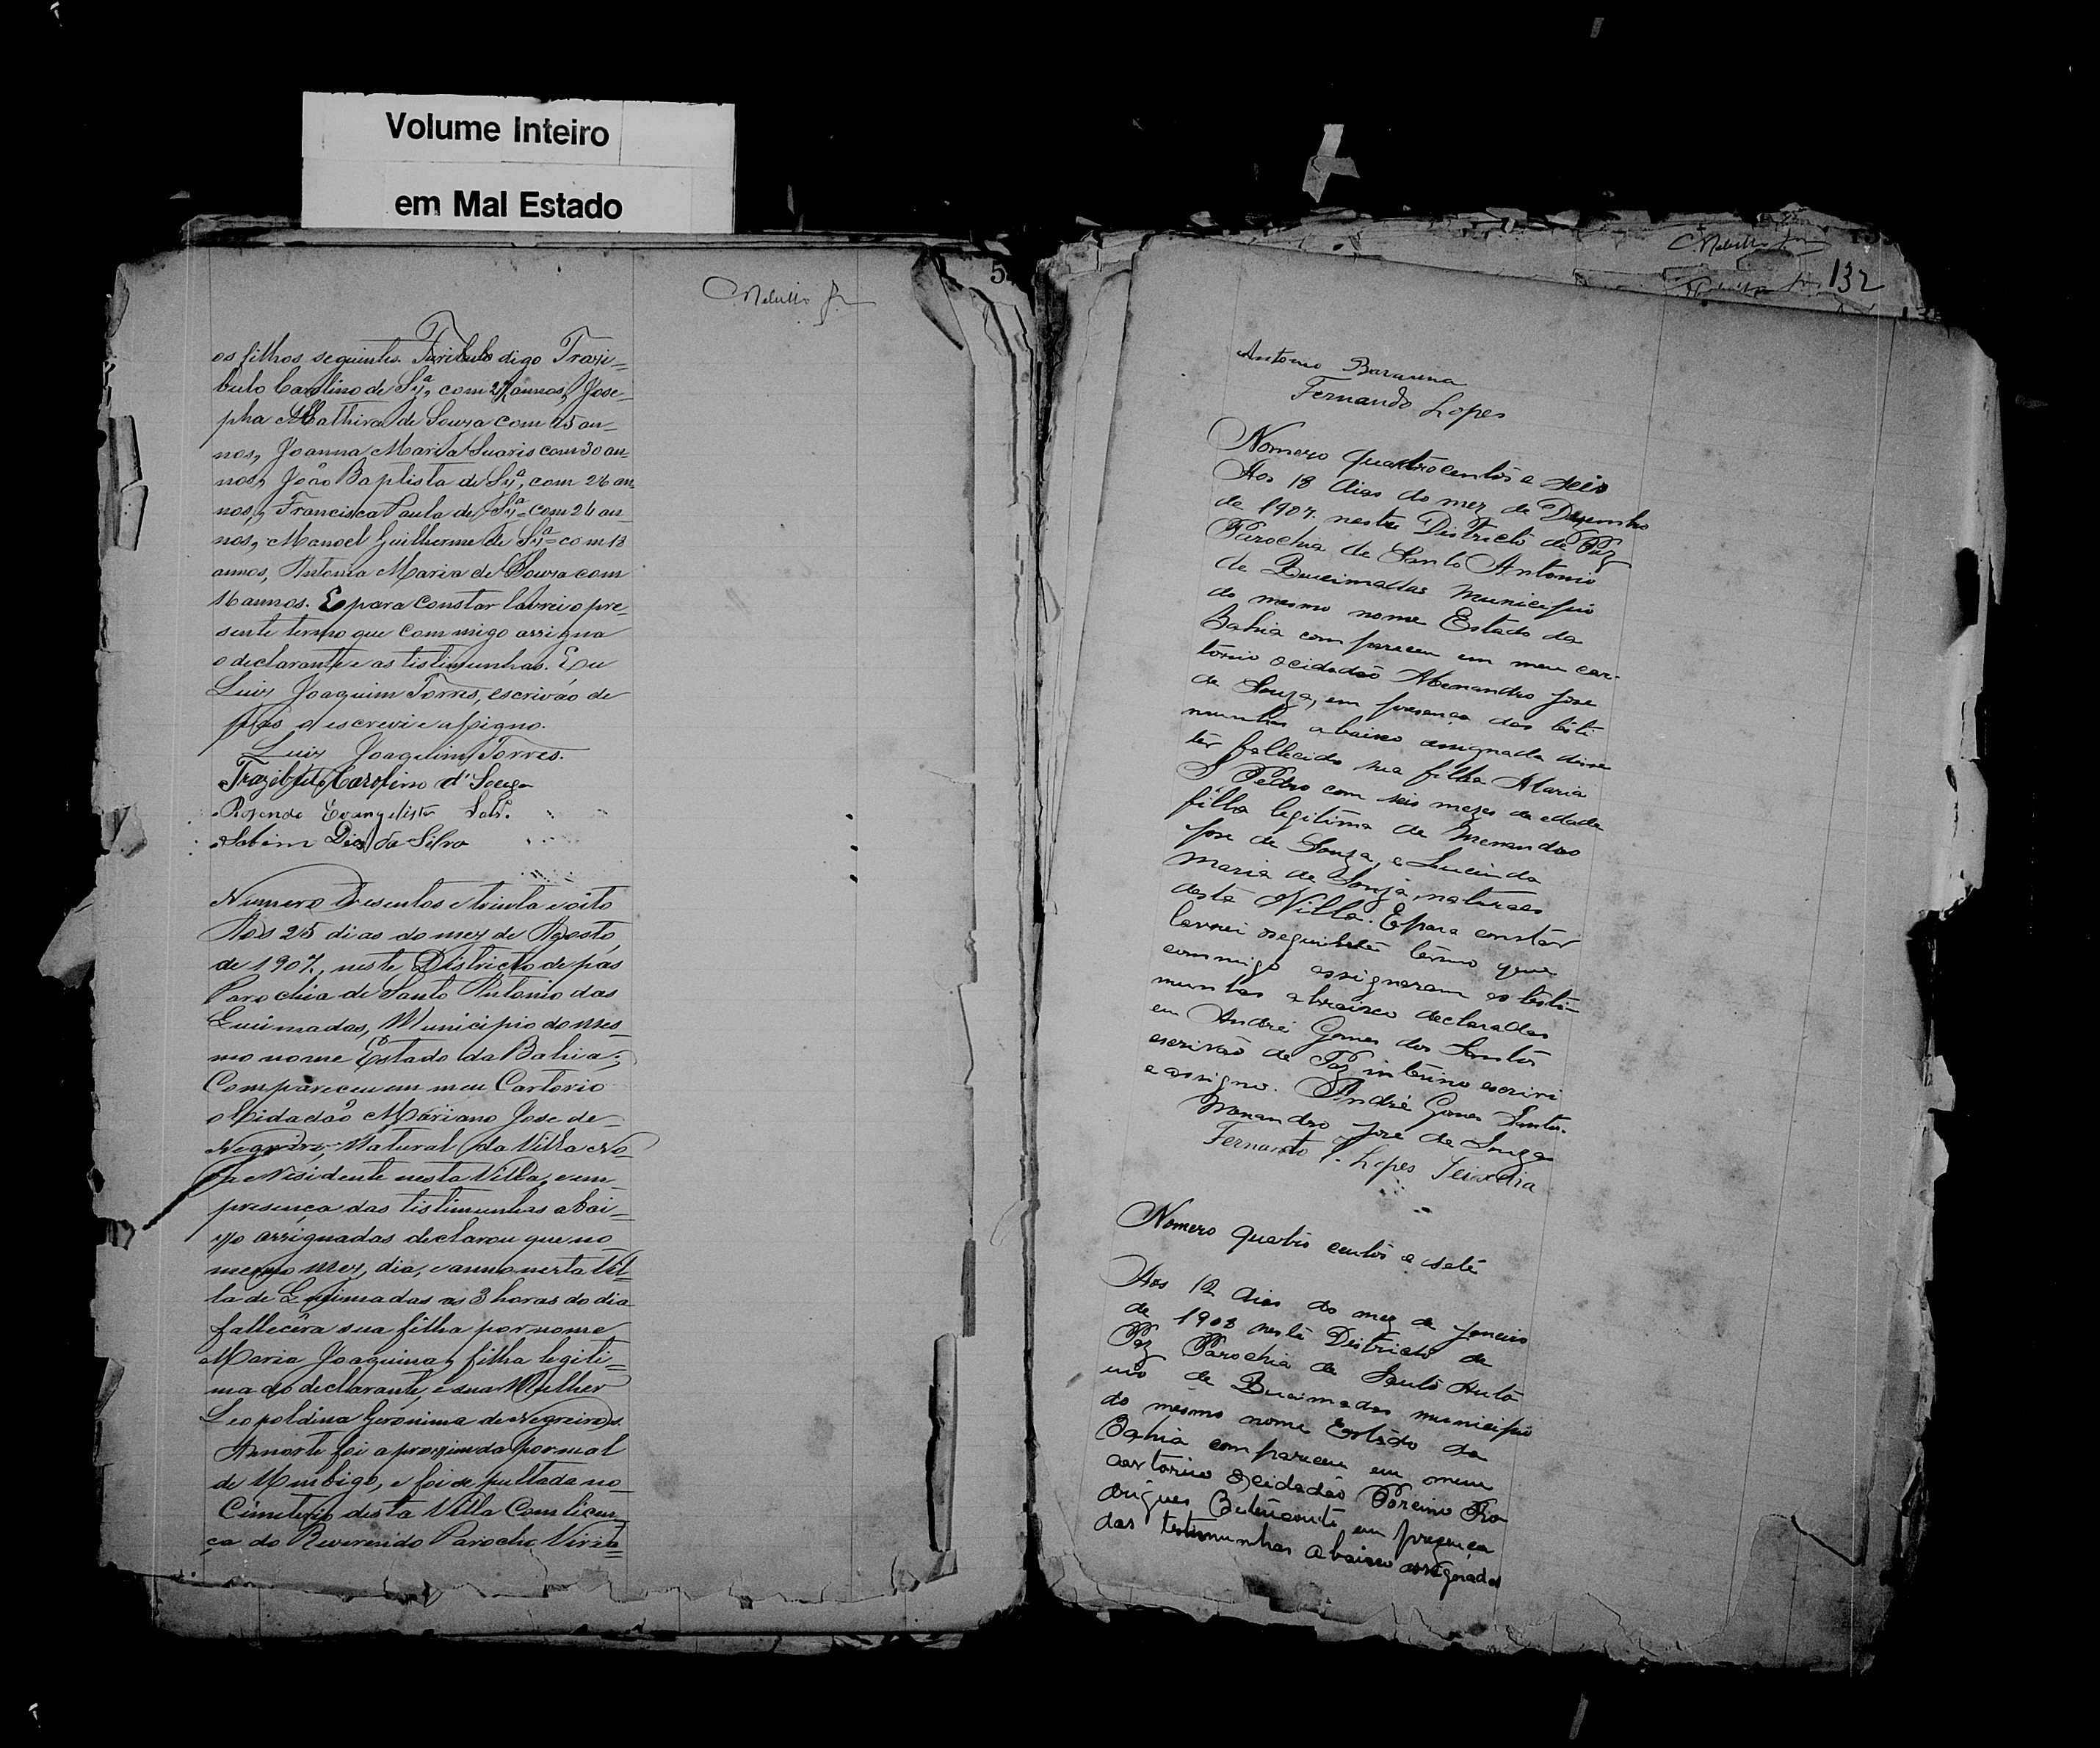 Volume Inteiro
em Mal Estado
5
os filhos seguintes. digo Trasi=
bulo Carolino de Sza, com 27 annos, Jose-
pha de Souza com 15 an-
nos, Joanna Maria com 30 an-
nos, João Baptista de Sza, com 26 an-
nos, Francisca Paula de Sza com 26 an-
nos, Manoel Guilherme de Sza com 18
annos, Antonia Maria de Souza com
16 annos. E para constar lavrei o pre-
sente termo que commigo assigna
o declarante e as tistimunhas. Eu
Luis Joaquim Torres, escrivão de
pas o escrevi e assigno.
Luis Joaquim Torres.
Carolino d'Souza
Rozendo Evangelista
Dias da Silva
Numero Tresentos e trinta e oito
Aos 25 dias do mez de Agosto
de 1907, neste Districto de pas
Parochia de Santo Antonio das
Queimadas, Municipio do mes-
mo nome Estado da Bahia;
Compareceu em meu Cartorio
o Cidadão Mariano Jose de
Natural da Villa No-
va Residente nesta Villa, e em
presença das tistimunhas abai=
xo assignadas declarou que no
mesmo mez, dia, e anno nesta Vil-
la de Queimadas as 3 horas do dia
fallecêra sua filha por nome
Maria Joaquina, filha legiti=
ma do declarante, e sua Mulher
Leopoldina Geronima de Negreiros.
A morte foi aproximda por mal
de Umbigo, e foi sepultada no
Cimiterio desta Villa Com licen-
ça do Reverendo Parocho
132
Antonio Barauna
Fernando Lopes
Nomero quatrocentos e seis
Aos 18 dias do mez de Dezembro
de 1907. neste Districto de Paz
Parochia de Santo Antonio
de Queimadas Municipio
do mesmo nome Estado da
Bahia compareceu em meu car-
torio o cidadão Menandro Jose
de Souza, em presença das testi
munhas abaixo assignada disse
ter fallecido sua filha Maria
S Pedro com seis mezes de edade
filha legitima de Menandro
Jose de Souza, e Lucinda
Maria de Souza, naturaes
desta Villa. E para constar
lavrei termo que
commigo assignaram as testi-
munhas abaixo declaradas
eu André Gomes dos Santos
escrivão de Paz interino escrivi
e assigno. André Gomes Santos.
Menandro José de Souza
Fernando P. Lopes Teixeira
Nomero quatro centos e sete
Aos 12 dias do mez de Janeiro
de 1908 neste Districto de
Paz Parochia de Santo Anto
nio de Queimadas municipio
do mesmo nome Estado da
Bahia compareceu em meu
cartorio o cidadão Ro
drigues em presença
das testimunhas abaixo assignados